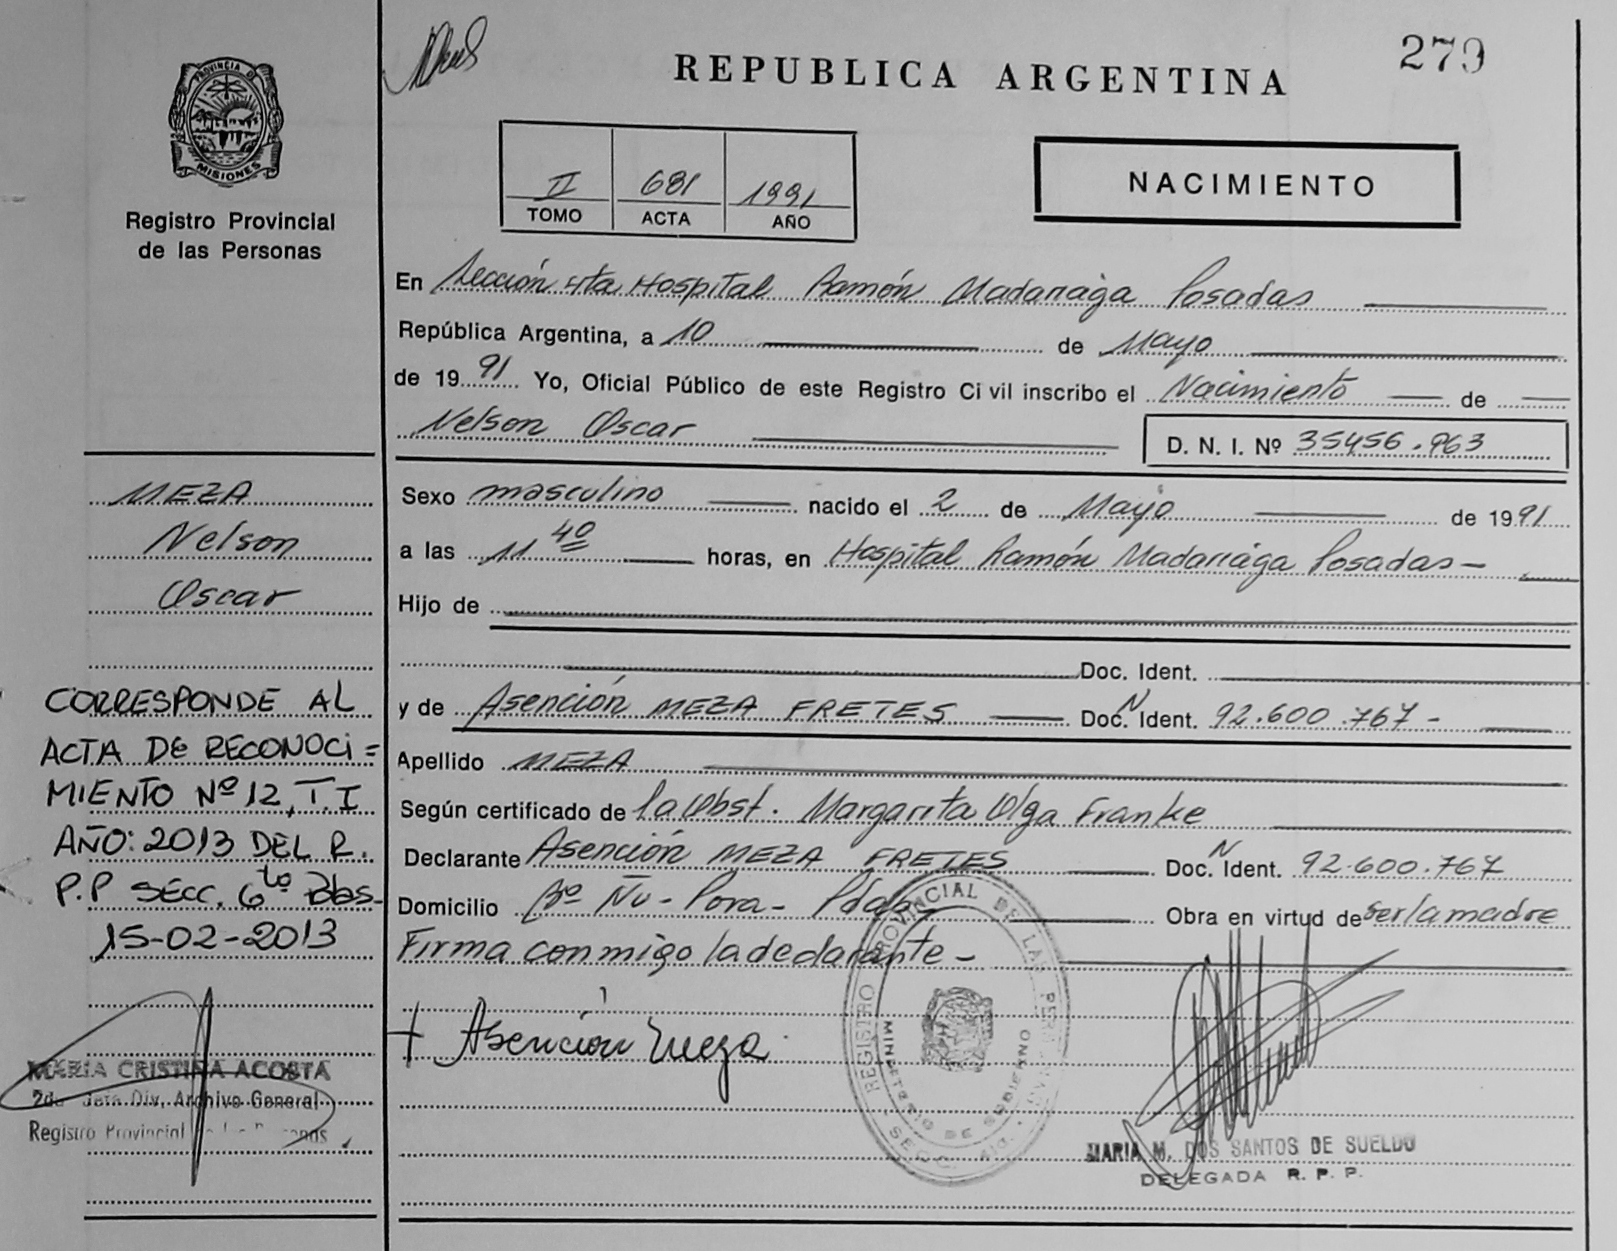 279
REPUBLICA ARGENTINA
PROVINCIA DE
MISIONES
Registro Provincial
de las Personas
II 681 1991
TOMO ACTA AÑO
NACIMIENTO
En Sección 4ta Hospital Ramón Madariaga Posadas
República Argentina, a 10 de Mayo
de 1991 Yo, Oficial Público de este Registro Civil inscribo el Nacimiento de
Nelson Oscar D. N. I. Nº 35456.963
Sexo masculino nacido el 2 de Mayo de 1991
a las 11 40 horas, en Hospital Ramón Madariaga Posadas-
Hijo de
Doc. Ident.
y de Asención MEZA FRETES Doc. N Ident. 92.600.767-
Apellido MEZA
Según certificado de la Obst. Margarita Olga Franke
Declarante Asención MEZA FRETES Doc. N Ident. 92.600.767
Domicilio Bº Ñu-Pora- Pdas- Obra en virtud de ser la madre
Firma conmigo la declarante-
+ Asención Meza
REGISTRO PROVINCIAL DE LAS PERSONAS
MINISTERIO DE GOBIERNO
MARIA M. DOS SANTOS DE SUELDO
DELEGADA R. P. P.
MEZA
Nelson
Oscar
CORRESPONDE AL
ACTA DE RECONOCI=
MIENTO Nº 12, T.I
AÑO: 2013 DEL R.
P.P SECC. 6ta Pdas-
15-02-2013
MARIA CRISTINA ACOSTA
2da Jefa Div, Archivo General
Registro Provincial de las Personas